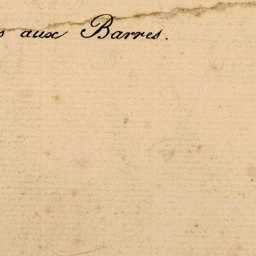 aux Barres.